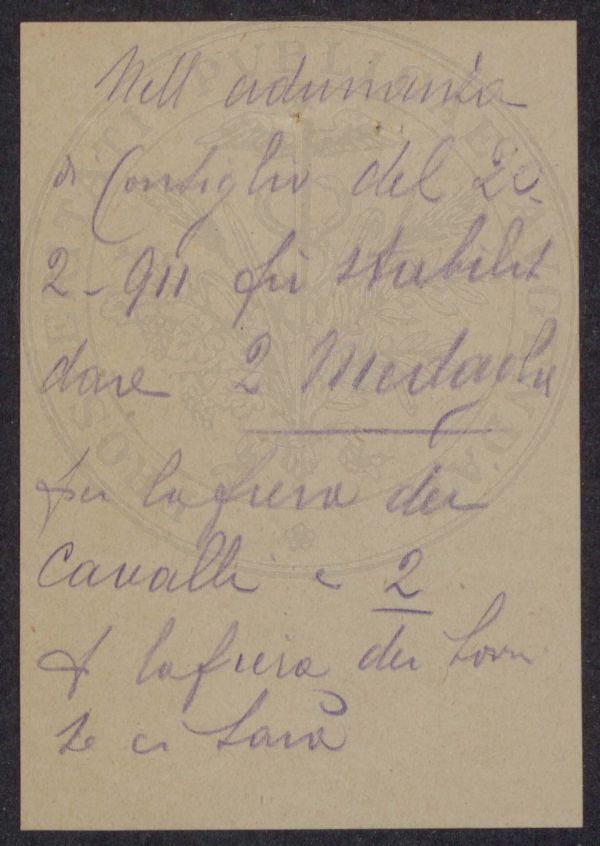 Nell adunanza
di Consiglio del 2
2-911 fu stabilit
dare 2 Medaglie
per la fiera dei
Cavalli e 2
p la fiera dei
se ci sarà